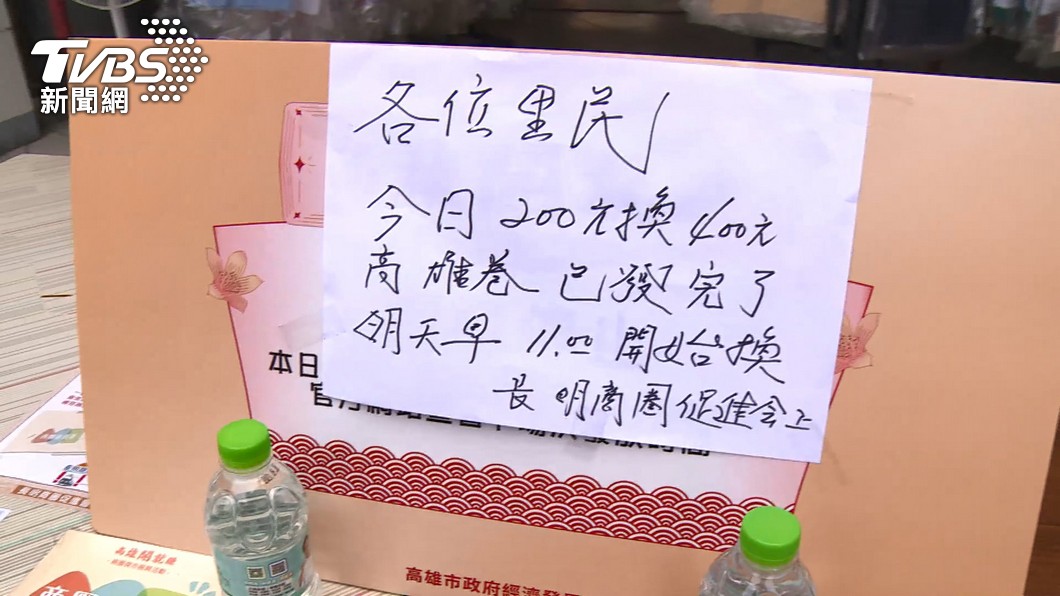 TVBS
新聞網
各位里民
今日200元換400元
高雄卷已發完了
明天早11.00開始換
長明商圈促進会上
本日
高雄市政府經濟發